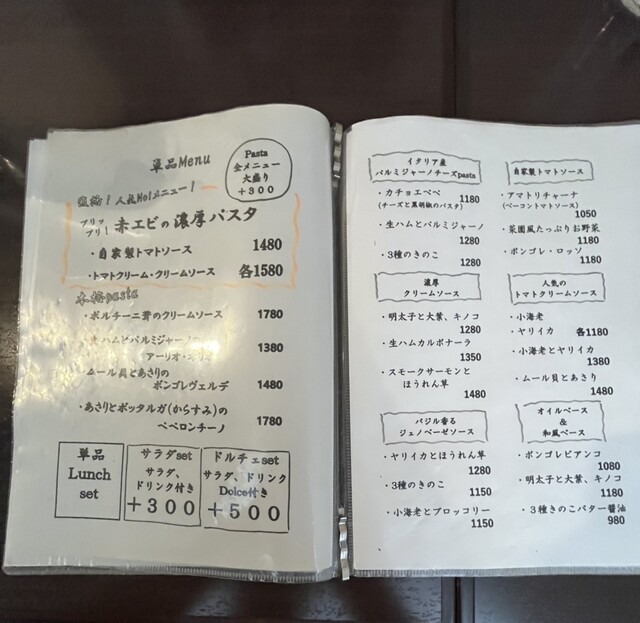 単品Menu
Pasta
全メニュー
大盛り
+300
人気No1メニュー!
プリップリ!赤エビの濃厚パスタ
・自家製トマトソース 1480
・トマトクリーム・クリームソース 各1580
本格pasta
・ポルチーニ茸のクリームソース 1780
生ハムとパルミジャーノの
アーリオ・オーリオ 1380
・ムール貝とあさりの
ボンゴレヴェルデ 1480
・あさりとボッタルガ(からすみ)の
ペペロンチーノ 1780
単品
Lunch
set
サラダset
サラダ、
ドリンク付き
+300
ドルチェset
サラダ、ドリンク
Dolce付き
+500
イタリア産
パルミジャーノチーズpasta
・カチョエペペ 1180
(チーズと黒胡椒のパスタ)
・生ハムとパルミジャーノ
1280
・3種のきのこ
1280
濃厚
クリームソース
・明太子と大葉、キノコ
1280
・生ハムカルボナーラ
1350
・スモークサーモンと
ほうれん草
1480
バジル香る
ジェノベーゼソース
・ヤリイカとほうれん草
1280
・3種のきのこ
1150
・小海老とブロッコリー
1150
自家製トマトソース
・アマトリチャーナ
(ベーコントマトソース)
1050
・菜園風たっぷりお野菜
1180
・ボンゴレ・ロッソ
1180
人気の
トマトクリームソース
・小海老
・ヤリイカ 各1180
・小海老とヤリイカ
1380
・ムール貝とあさり
1480
オイルベース
&
和風ベース
・ボンゴレビアンコ
1080
・明太子と大葉、キノコ
1180
・3種きのこバター醤油
980